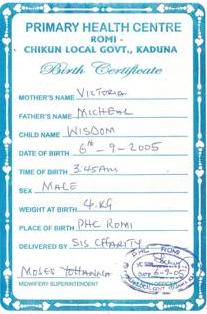 PRIMARY HEALTH CENTRE
ROMI -
CHIKUN LOCAL GOVT., KADUNA
Birth Certificate
MOTHER'S NAME Victoria
FATHER'S NAME Micheal
CHILD NAME WISDOM
DATE OF BIRTH 6th - 9 - 2005
TIME OF BIRTH 3:45am
SEX MALE
WEIGHT AT BIRTH 4.KG
PLACE OF BIRTH PHC ROMI
DELIVERED BY SIS CHARITY
PHC ROMI
6-9-05
MOSES YOHANNA
MIDWIFERY SUPERINTENDENT